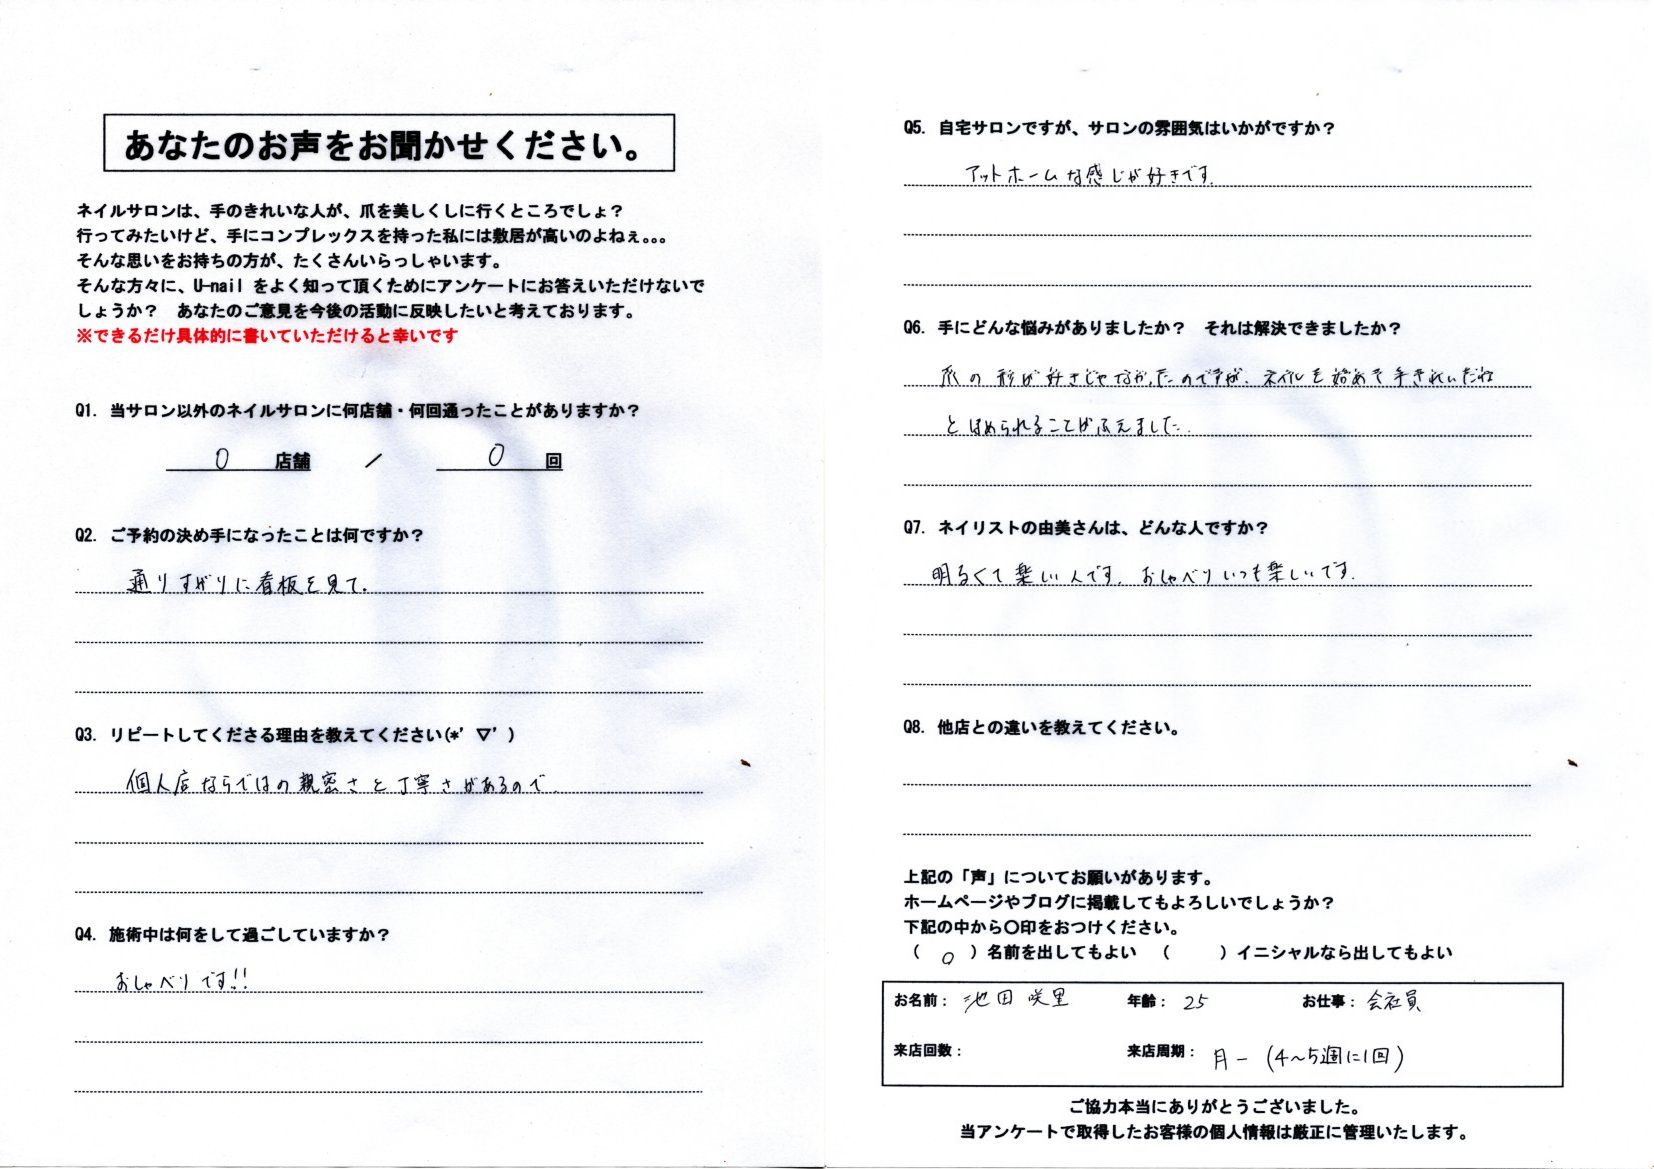 あなたのお声をお聞かせください。
ネイルサロンは、手のきれいな人が、爪を美しくしに行くところでしょ？
行ってみたいけど、手にコンプレックスを持った私には敷居が高いのよねぇ。。。
そんな思いをお持ちの方が、たくさんいらっしゃいます。
そんな方々に、U-nail をよく知って頂くためにアンケートにお答えいただけないで
しょうか？　あなたのご意見を今後の活動に反映したいと考えております。
※できるだけ具体的に書いていただけると幸いです
Q1. 当サロン以外のネイルサロンに何店舗・何回通ったことがありますか？
0 店舗 ／ 0 回
Q2. ご予約の決め手になったことは何ですか？
通りすがりに看板を見て。
Q3. リピートしてくださる理由を教えてください(*'▽')
個人店ならではの親密さと丁寧さがあるので。
Q4. 施術中は何をして過ごしていますか？
おしゃべりです!!
Q5. 自宅サロンですが、サロンの雰囲気はいかがですか？
アットホームな感じが好きです。
Q6. 手にどんな悩みがありましたか？　それは解決できましたか？
爪の形が好きじゃなかったのですが、ネイルを始めて手きれいだね
とほめられることがふえました。
Q7. ネイリストの由美さんは、どんな人ですか？
明るくて楽しい人です。おしゃべりいつも楽しいです。
Q8. 他店との違いを教えてください。
上記の「声」についてお願いがあります。
ホームページやブログに掲載してもよろしいでしょうか？
下記の中から〇印をおつけください。
（ ○ ）名前を出してもよい （ ）イニシャルなら出してもよい
お名前： 池田 咲里 年齢： 25 お仕事： 会社員
来店回数： 来店周期： 月一 (4〜5週に1回)
ご協力本当にありがとうございました。
当アンケートで取得したお客様の個人情報は厳正に管理いたします。